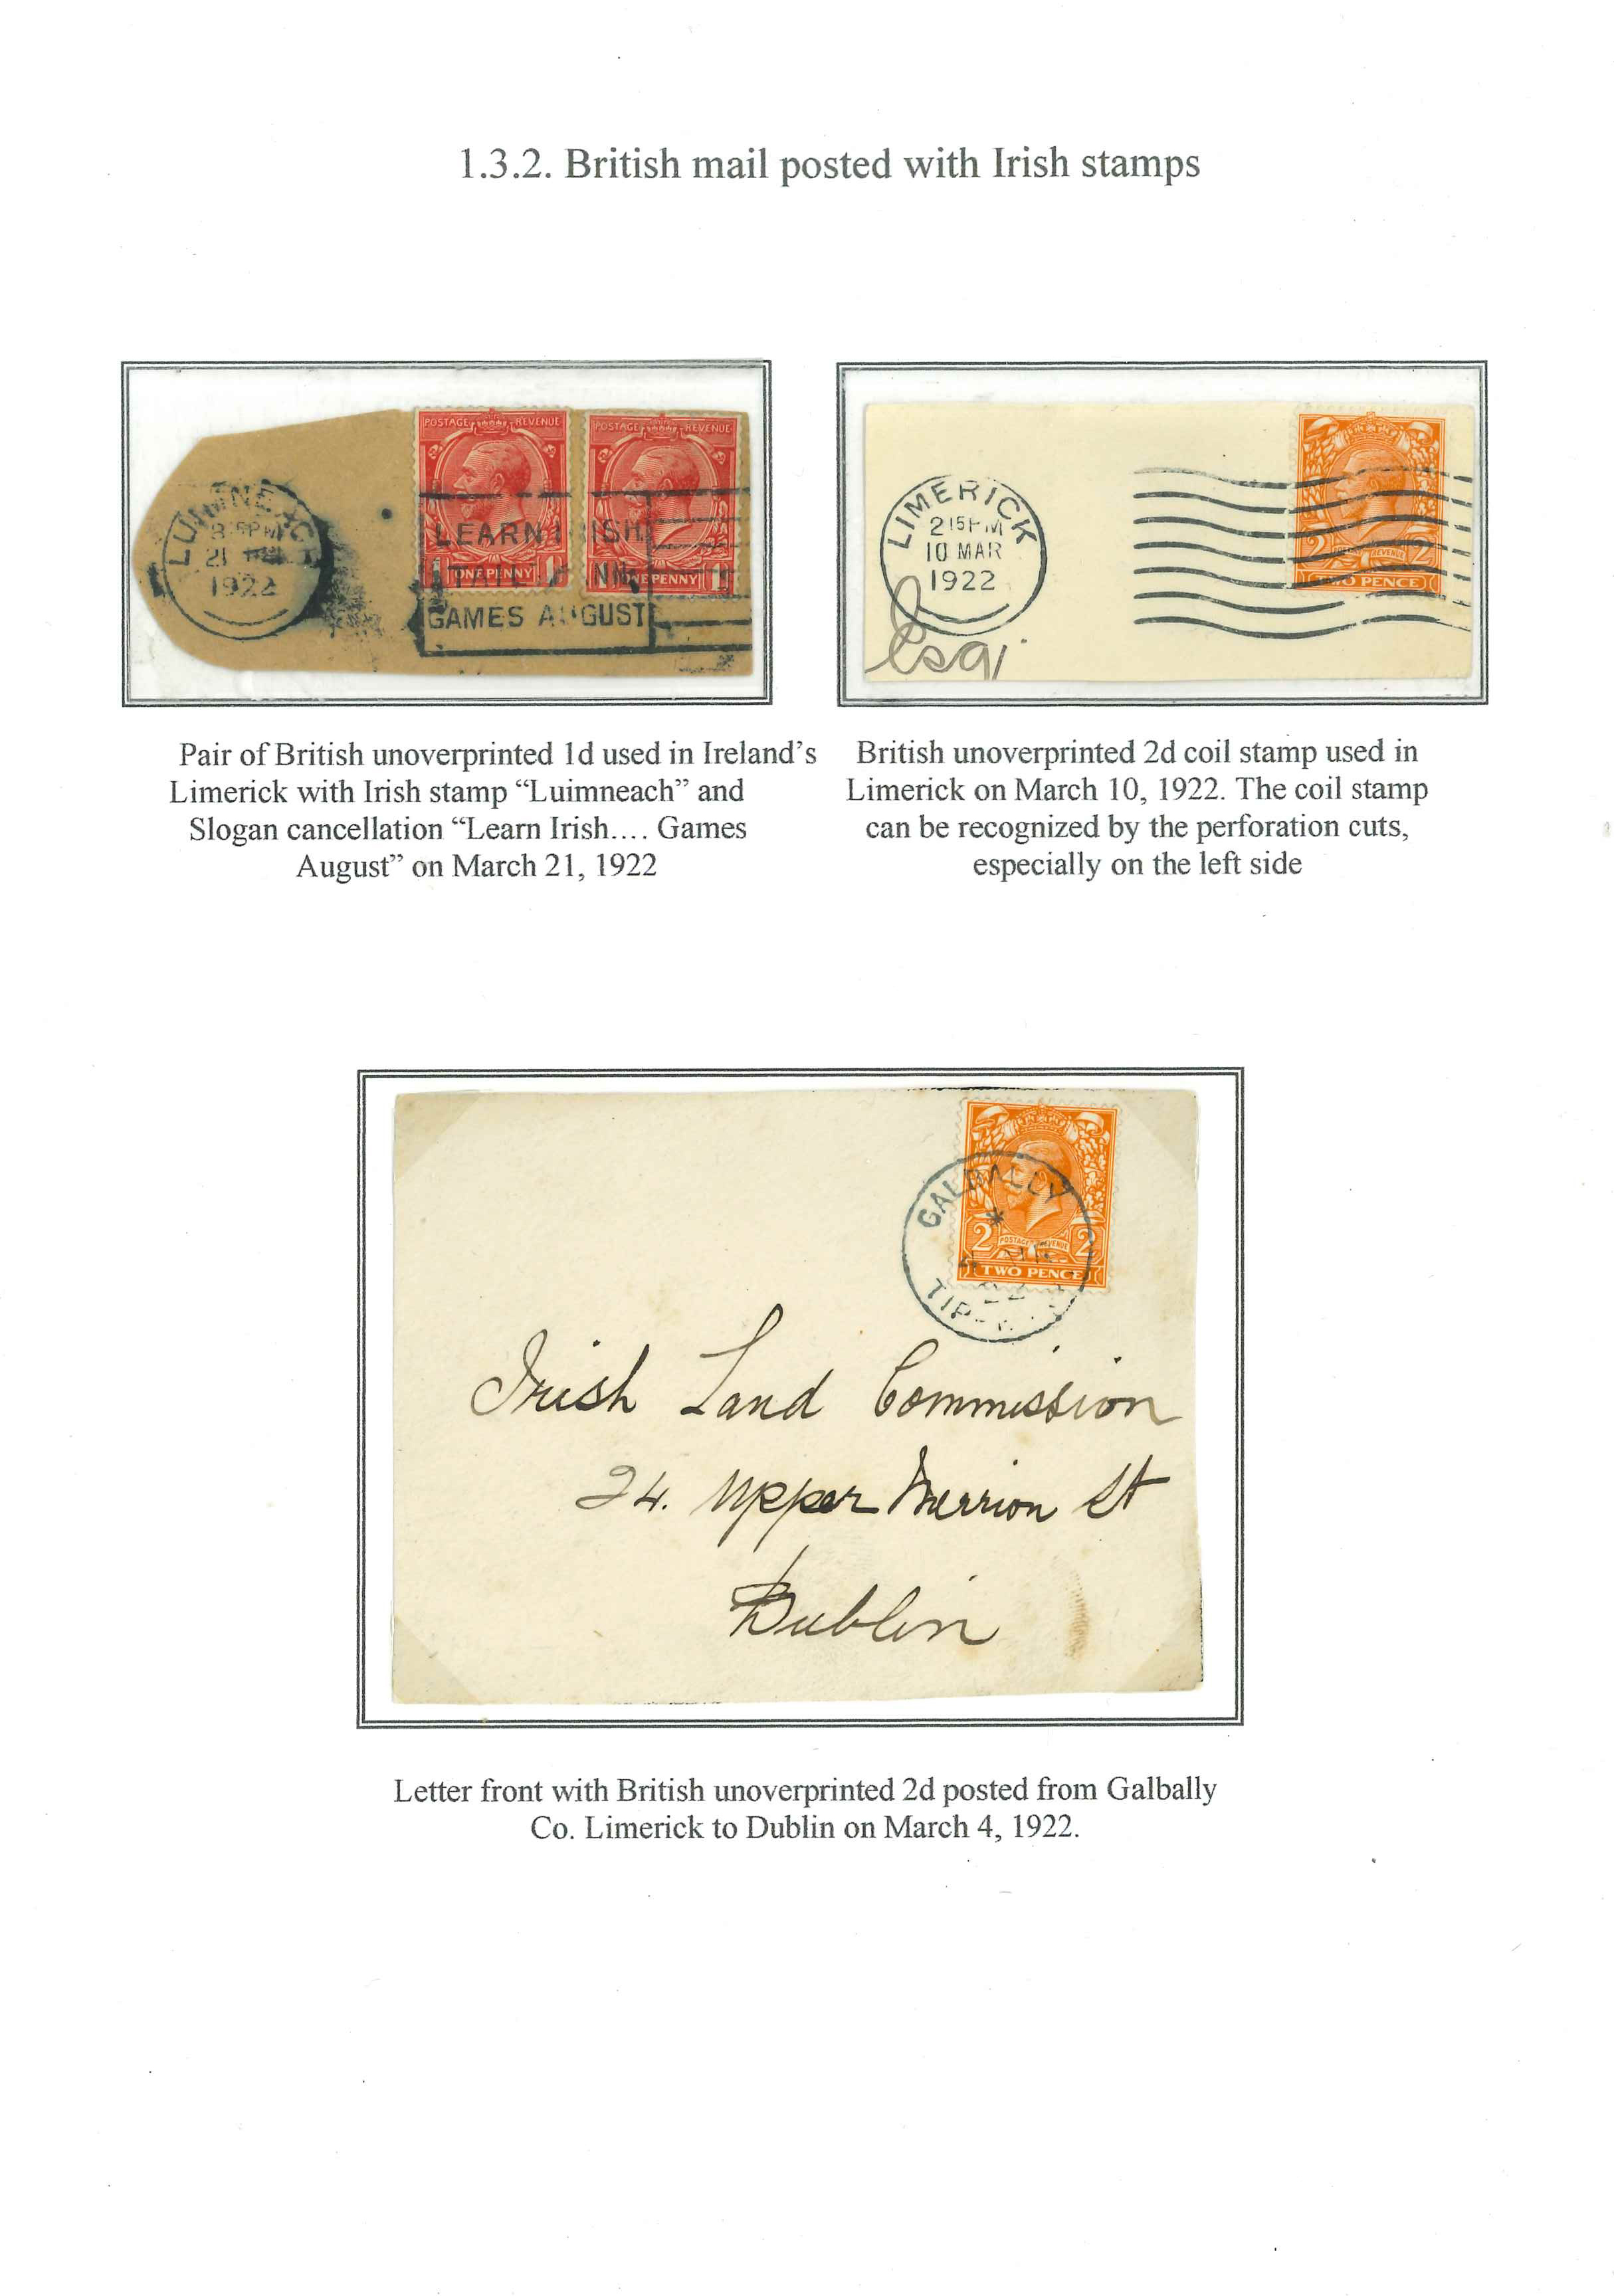 1.3.2. British mail posted with Irish stamps
POSTAGE REVENUE
POSTAGE REVENUE
LUIMNEACH
8 15PM
21
1922
LEARN IRISH
GAMES AUGUST
ONE PENNY
ONE PENNY
LIMERICK
2 15PM
10 MAR
1922
Esq
2 REVENUE 2
TWO PENCE
Pair of British unoverprinted 1d used in Ireland's
Limerick with Irish stamp “Luimneach” and
Slogan cancellation “Learn Irish.... Games
August” on March 21, 1922
British unoverprinted 2d coil stamp used in
Limerick on March 10, 1922. The coil stamp
can be recognized by the perforation cuts,
especially on the left side
GALBALLY
4
22
2 POSTAGE REVENUE 2
TWO PENCE
Irish Land Commission
24. Upper Merrion St
Dublin
Letter front with British unoverprinted 2d posted from Galbally
Co. Limerick to Dublin on March 4, 1922.